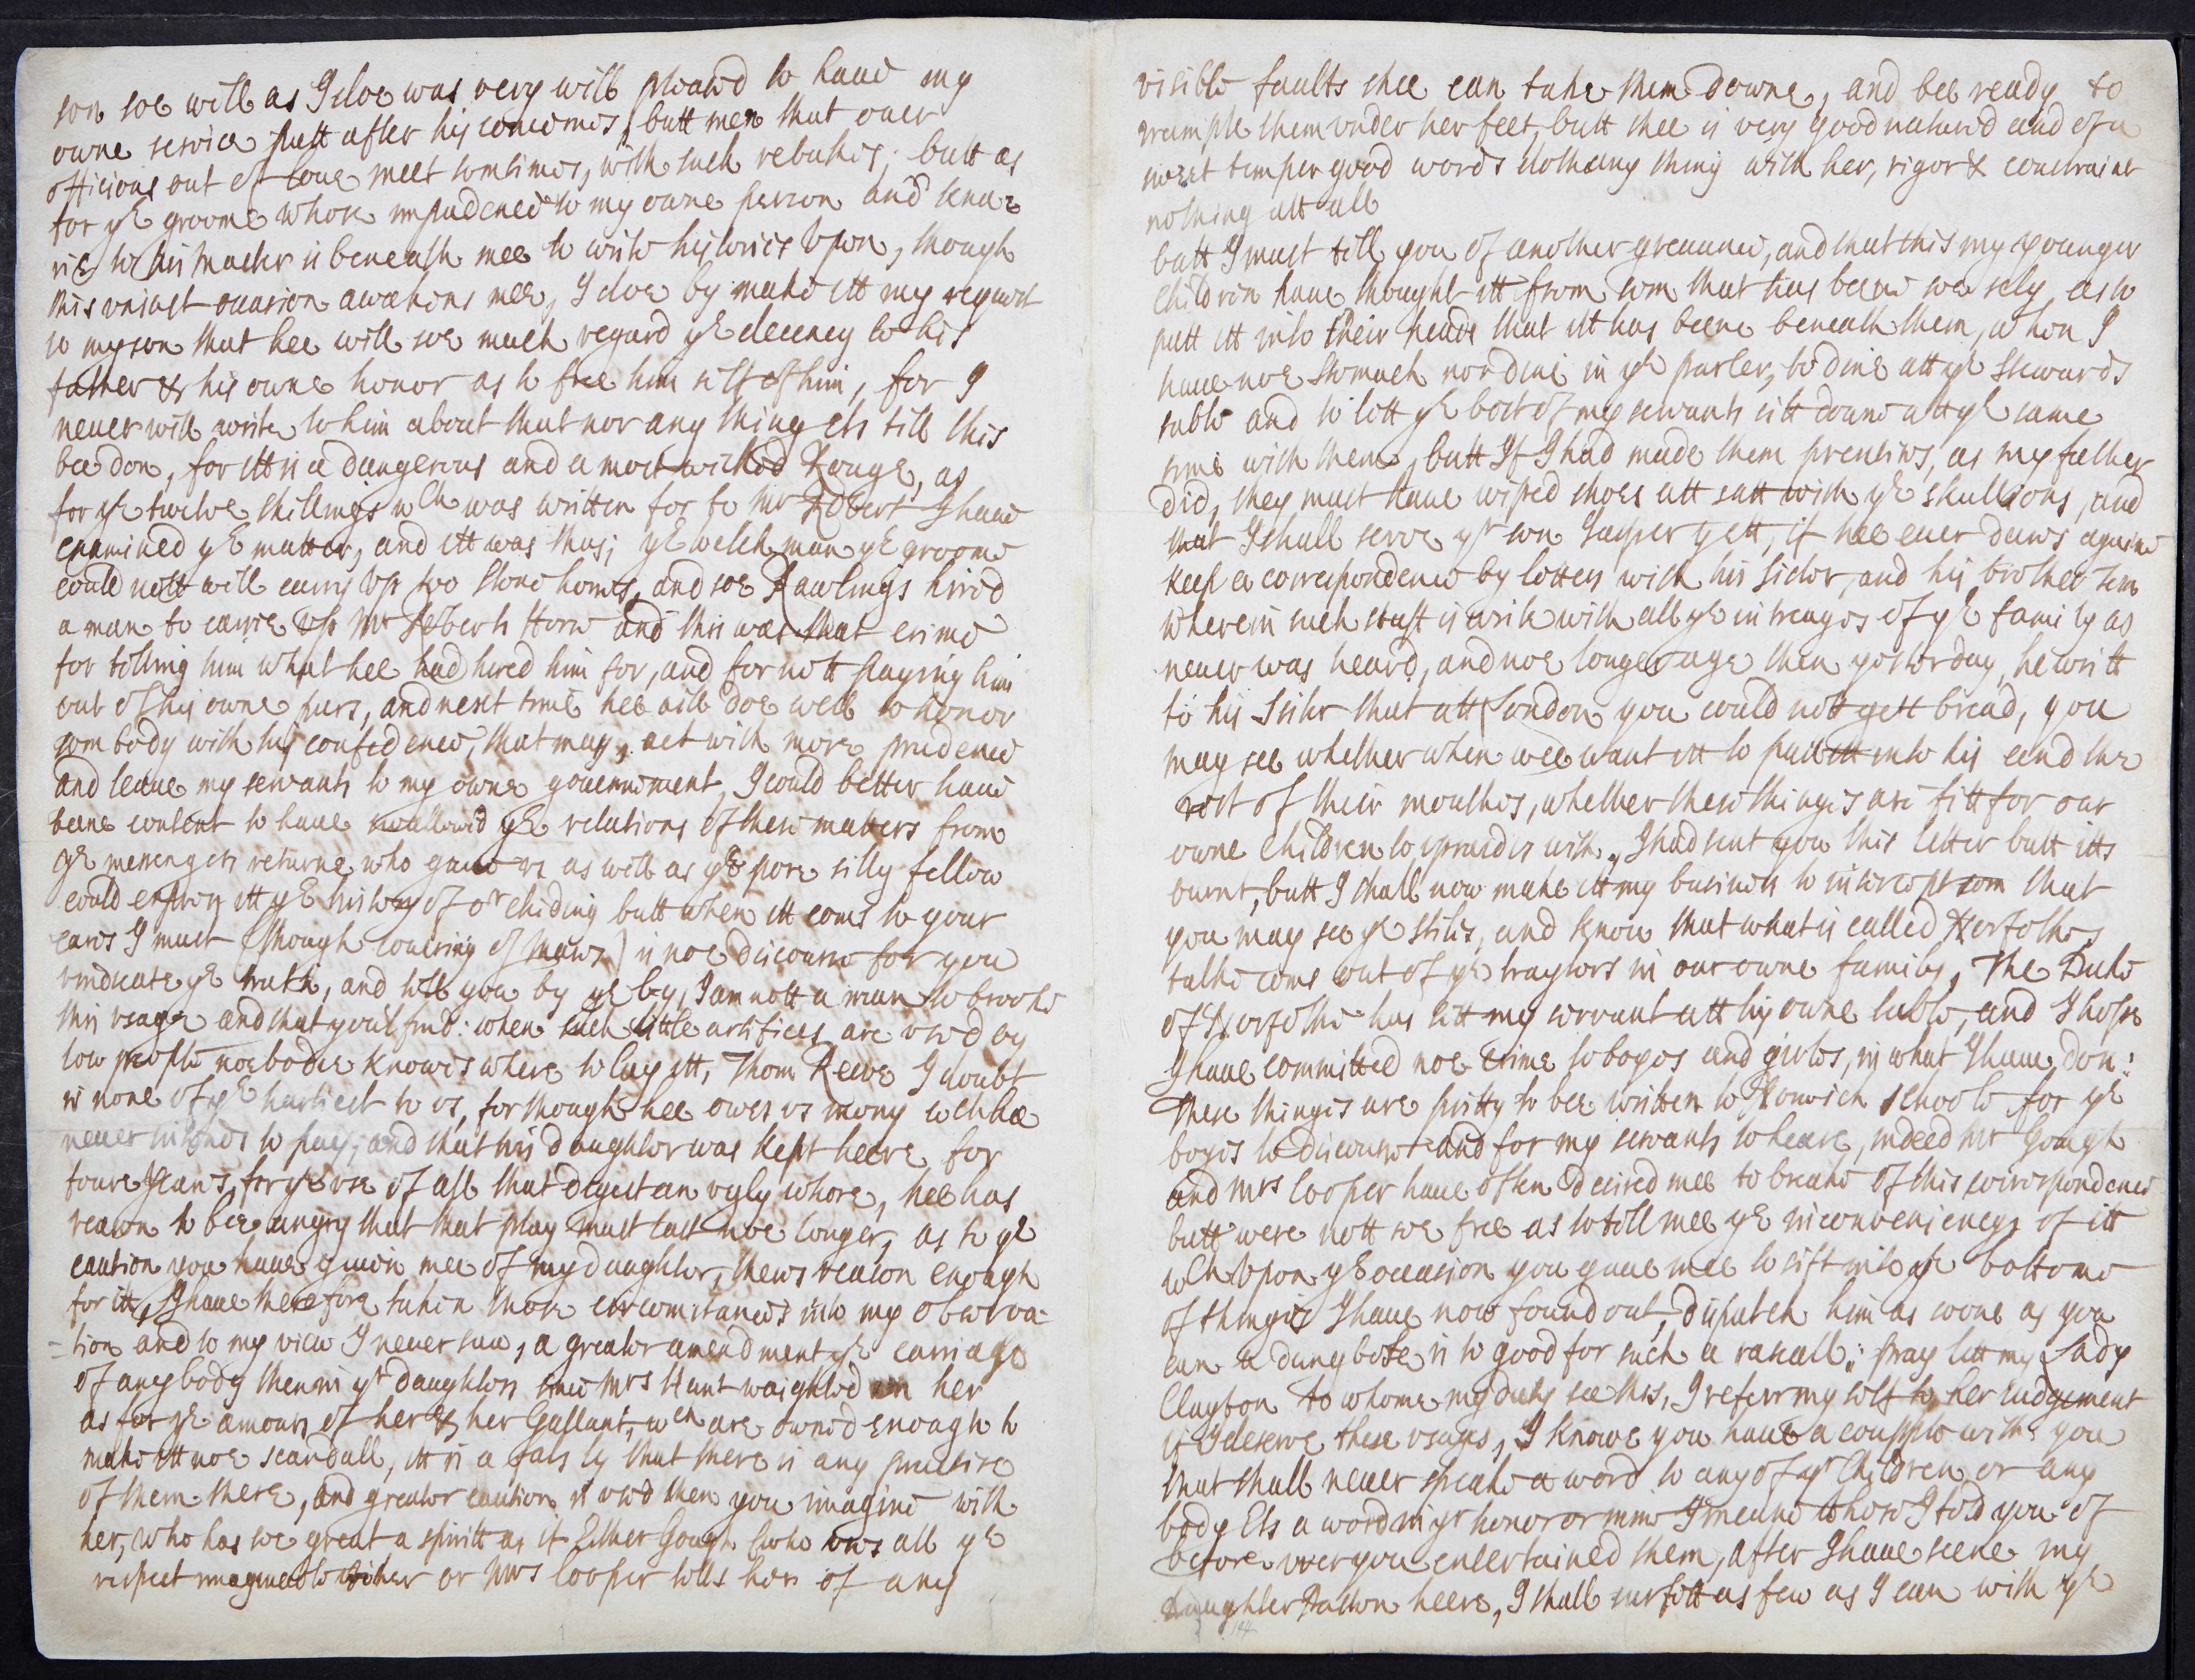 son soe well as I doe was very well pleas'd to haue my
owne service putt after his concernes, butt men that ouer
officious out of loue meet somtimes, with such rebukes; butt as
for ye groome whose impudence to my owne person and
to his Master is beneath mee to write histories Vpon, though
this vniust occasion awakens mee, I doe by make itt my request
to my son that hee will soe much regard ye decency to his
father & his owne honor as to free him self of him, for I
neuer will write to him about that nor any thing els till this
bee don, for itt is a dangerous and a most wicked Rouge, as
for ye twelue shillings wch was written for to Mr Robert I haue
examined ye matter, and itt was thus; ye welch man ye groome
could nott well carry Vp two stone horses, and soe Rawlings hired
a man to carrie Vp Mr Roberts Horse and this was that crime
for telling him what hee had hired him for, and for nott paying him
out of his owne purs, and next time hee will doe well to honor
som body with his confidence, that may act with more prudence
and leaue my servants to my owne gouernment, I could better haue
beene content to haue swallowed ye relations of these matters from
ye messengers returne who gaue vs as well as ye pore silly fellow
could express itt ye history of or chiding butt when itt coms to your
eares I must (though couering of Mares) is noe discourse for you
vindicate ye truth, and tell you by ye by, I am nott a man to brooke
this vsage and that you'l find: when such little artifices are vs'd by
low people noebodie knowes where to lay itt, Thom Reeve I doubt
is none of ye hartiest to vs, for though hee owes vs mony wch hee
neuer intends to pay, and that his daughter was kept heere for
foure yeares, for ye vse of all that diget an vgly whore, hee has
reason to bee angry that that play must last noe longer, as to ye
caution you haue giuen mee of my daughter, thers reason enough
for itt, I haue therefore taken those circomstances into my obserua-
-tion and to my view I neuer saw, a greater amendment ye carriage
of any body then in yr daughters since Mrs Hunt waighted on her
as for ye amours of her & her Gallant, wch are owned enough to
make itt noe scandall, itt is a fals ly that there is any practise
of them there, and greater caution is vsed then you imagine with
her, who has soe great a spiritt as if Esther Gough (who ows all ye
respect imagineable to her or Mrs Cooper tells her of any
visible faults shee can take them downe, and bee ready to
trample them vnder her feet, butt shee is very good natur'd and of a
sweet temper good words doth any thing with her, rigor & constraint
nothing att all
butt I must tell you of another greauance, and that this my younger
Children haue thought itt from som that has beene soe sely as to
putt itt into their heads that itt has beene beneath them, when I
haue noe stomach nor dine in ye parler, to dine att ye stewards
table and to lett ye best of my servants sitt doune att ye same
time with them, butt If I had made them prentises, as my father
did, they must haue wiped shoes att satt with ye skullions, and
that I shall serve yr son Jasper yett, if hee euer dares againe
keep a correspondence by letters with his sister, and his brother Tom
wherein such stuff is writt with all ye intreages of ye family as
neuer was heard, and noe longer age then yesterday, he writt
to his Sister that att London you could nott gett bread, you
may see whether when wee want itt to putt itt into his and the
rest of their mouthes, whether these things are fitt for our
owne Children to vpraid vs with, I had sent you this letter butt itts
burnt, butt I shall now make itt my business to intercept som that
you may see ye stiles, and know that what is called Norfolke
talke coms out of ye traytors in our owne family, The Duke
of Norfolke has lett my servant att his owne table, and I hope
I haue committed noe crime to boyes and girles, in what I haue don:
These things are pritty to bee written to Norwich schoole for ye
boyes to discourse and for my servants to heare, indeed Mr Gough
and Mrs Cooper haue often desired mee to breake of this correspondence
butt were nott soe free as to tell mee ye inconveniencys of itt
wch Vpon ye occasion you gaue mee to sift into ye bottome
of things I haue now found out, dispatch him as soone as you
can a dung bote is to good for such a rascall; pray lett my Lady
Clayton to whome my duty see this, I referr my self to her iudgement
if I deserve these vsages, I knowe you haue a coupple with you
that shall neuer speake a word to any of yr Children or any
body Els a word in yr honor or mine I meane those I told you of
before euer you entertained them, after I haue seene my
daughter Paston heere, I shall surfitt as few as I can with ye